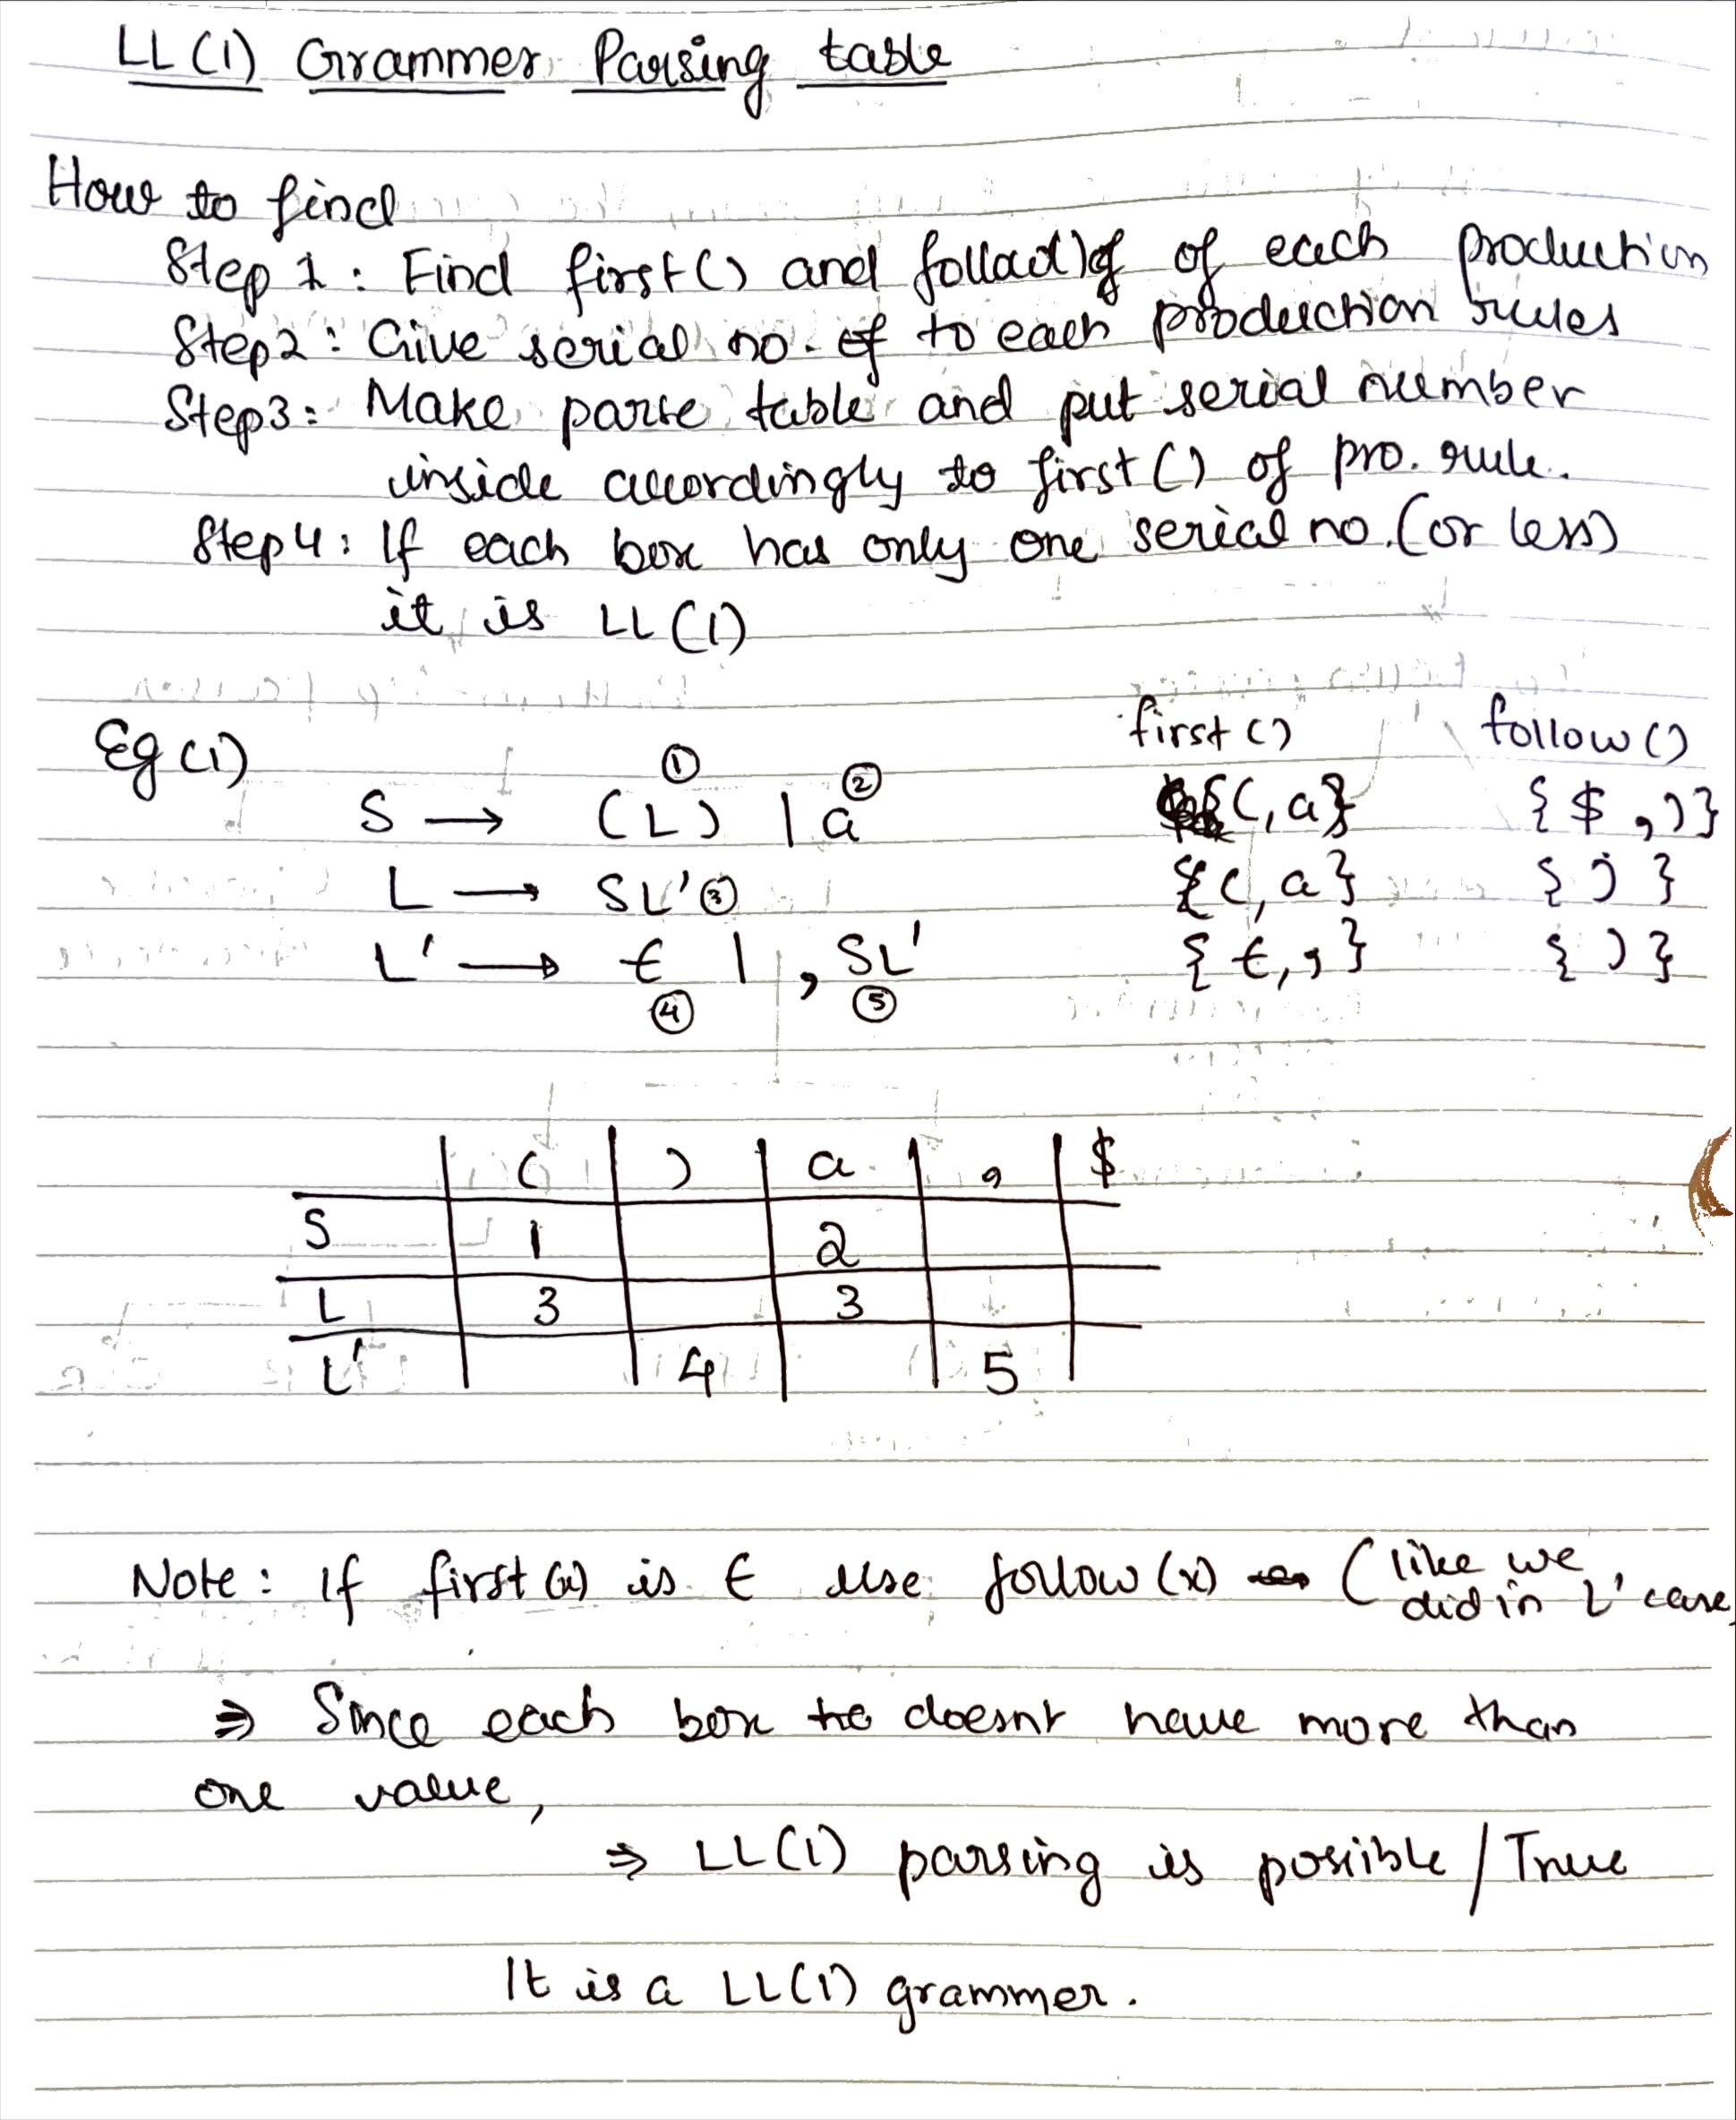 LL(1) Grammer Parsing table
How to find
Step 1: Find first() and follow() of of each production
Step2: Give serial no. of to each production rules
Step3: Make parse table and put serial number
inside accordingly to first() of pro. rule.
Step4: If each box has only one serial no. (or less)
it is LL(1)
Eg(1) first() follow()
① ②
S → (L) | a {(, a} { $ , ) }
L → SL' ③ {(, a} { ) }
L' → ϵ | , SL' { ϵ, , } { ) }
④ ⑤
( ) a , $
S 1 2
L 3 3
L' 4 5
Note: If first(x) is ϵ use follow(x) (like we
did in L' case)
⇒ Since each box doesnt have more than
one value,
⇒ LL(1) parsing is posiible / True
It is a LL(1) grammer.